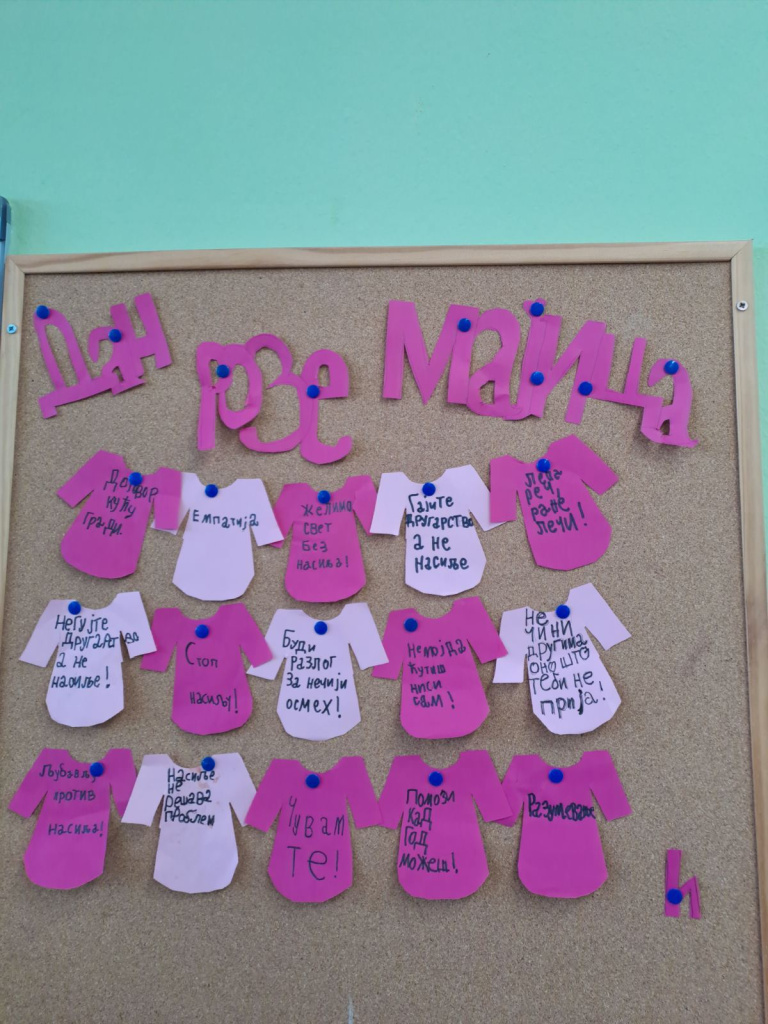 Дан розе мајица
Договор
кућу
гради.
Емпатија
Желимо
свет
без
насиља!
Гајите
другарство
а не
насиље
Лепа
реч
ране
лечи!
Негујте
другарство
а не
насиље!
Стоп
насиљу!
Буди
разлог
за нечији
осмех!
Немој да
ћутиш
ниси
сам!
Не
чини
другима
оно што
теби не
прија!
Љубављу
против
насиља!
Насиље
не
решава
проблем
Чувам
те!
Помози
кад
год
можеш!
Разумевање
h